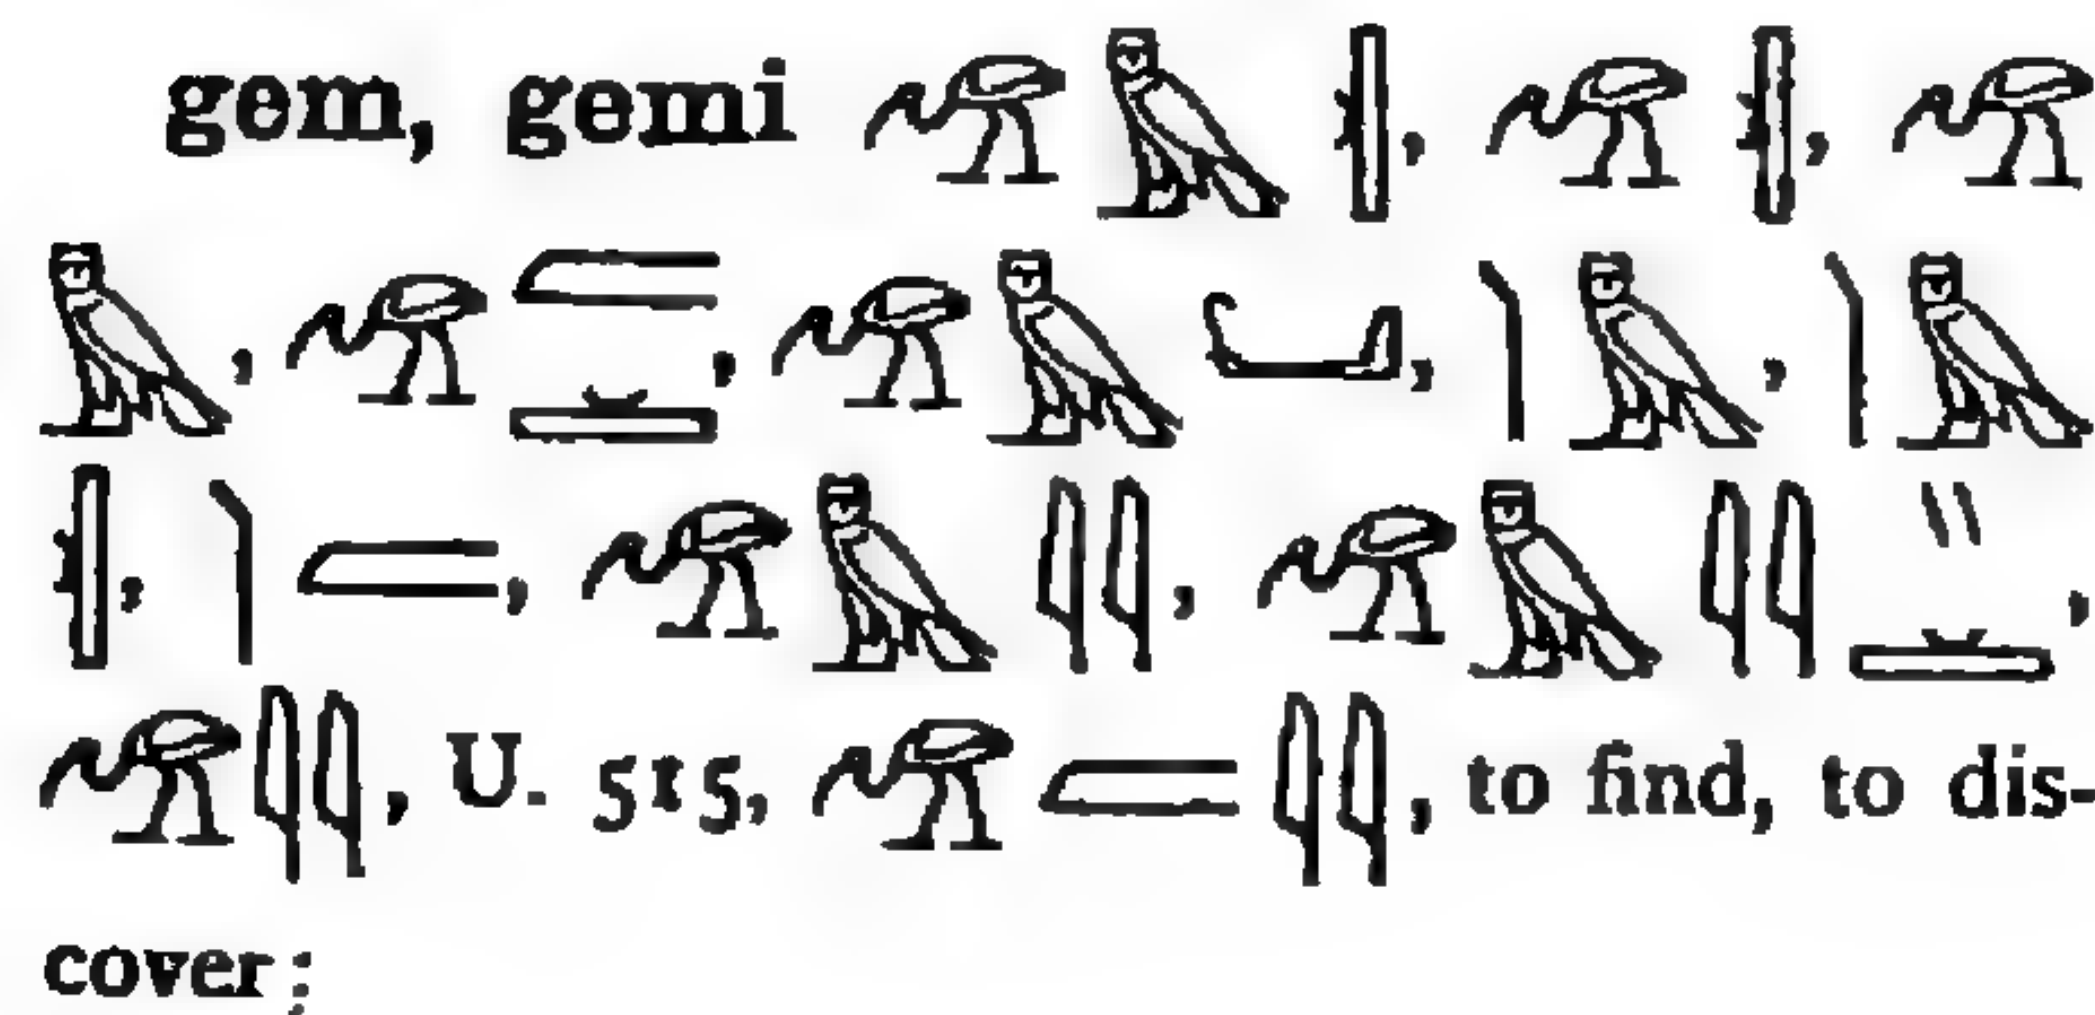 gem, gemi 𓅠𓅓𓏝, 𓅠𓏝, 𓅠
𓅓, 𓅠𓐝𓏛, 𓅠𓅓, 𓌙𓅓, 𓌙𓅓
𓏝, 𓌙𓐝, 𓅠𓅓𓇌, 𓅠𓅓𓇌𓏭𓏛,
𓅠𓇌, U. 515, 𓅠𓐝𓇌, to find, to dis-
cover;